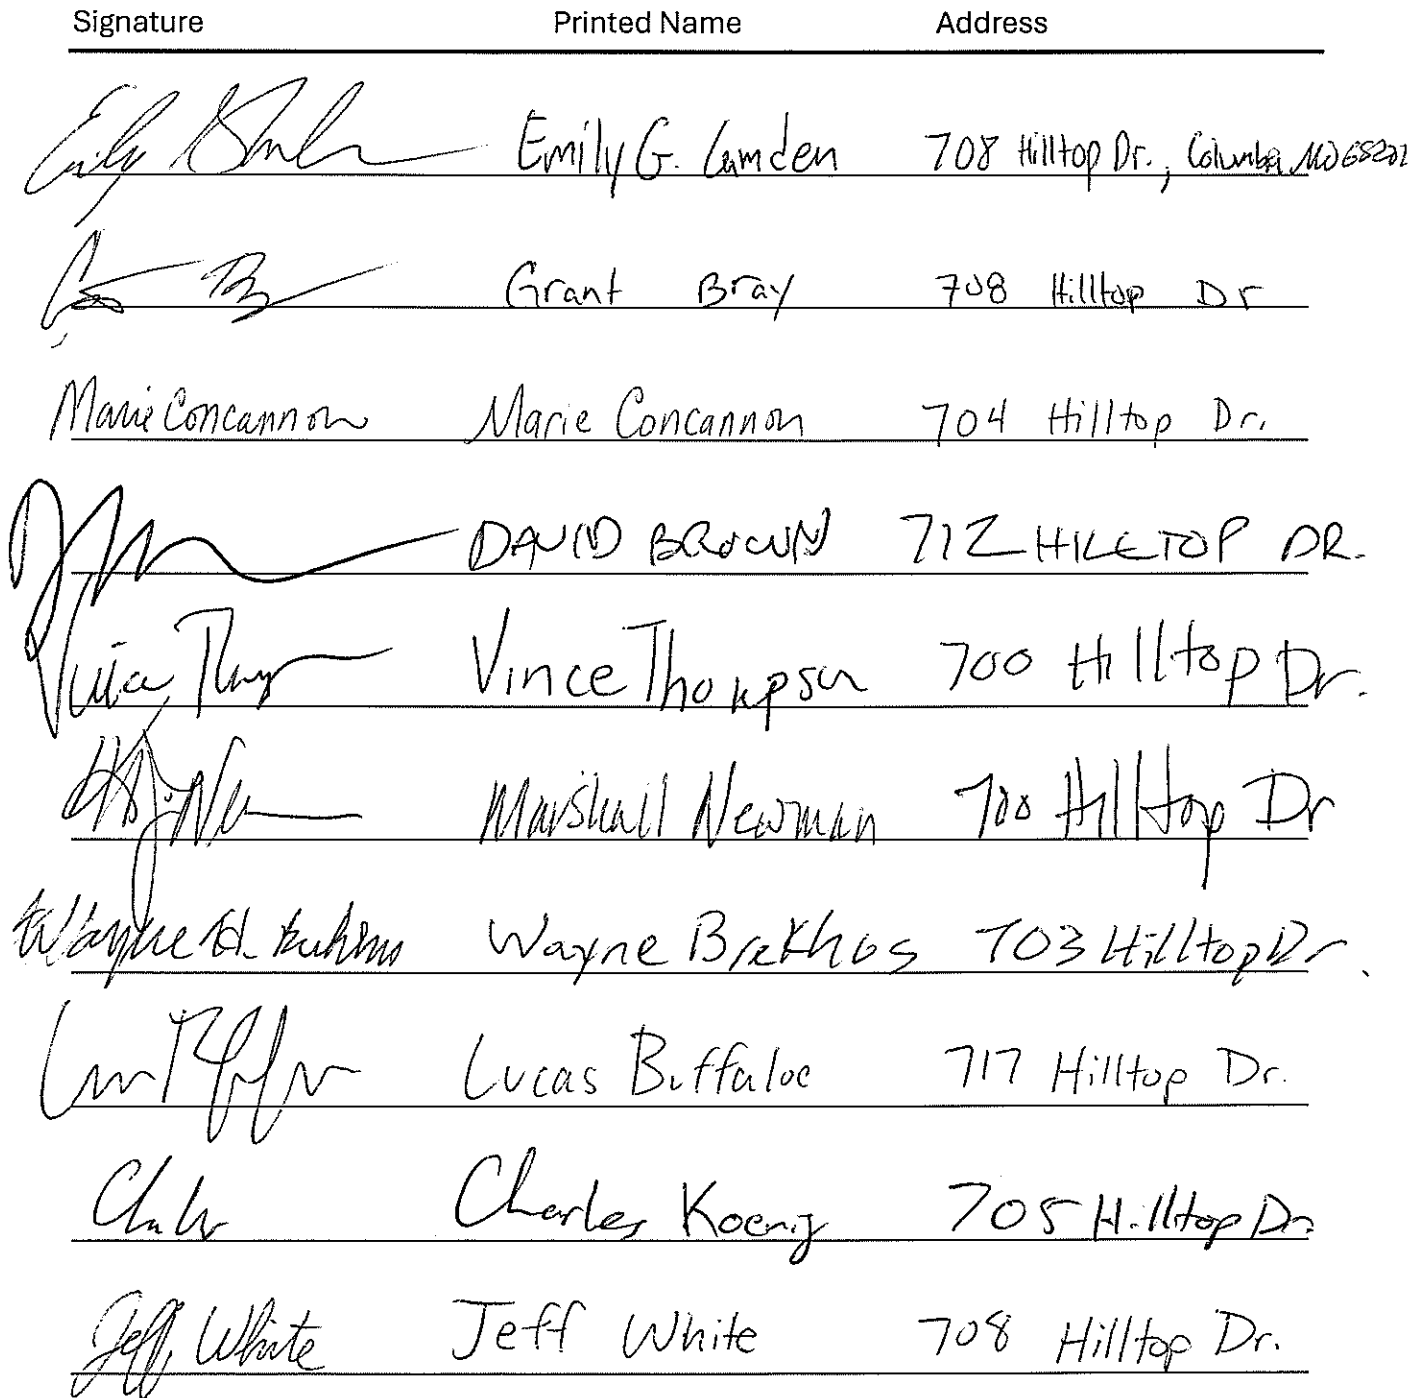 Signature Printed Name Address
Emily G. Camden 708 Hilltop Dr., Columbia, MO 65202
Grant Bray 708 Hilltop Dr
Marie Concannon Marie Concannon 704 Hilltop Dr.
DAVID BROWN 712 HILLTOP DR.
Vince Thompson 700 Hilltop Dr.
Marshall Newman 700 Hilltop Dr
Wayne H. Brekhus Wayne Brekhus 703 Hilltop Dr.
Lucas Buffaloe 717 Hilltop Dr.
Charles Koenig 705 Hilltop Dr.
Jeff White Jeff White 708 Hilltop Dr.